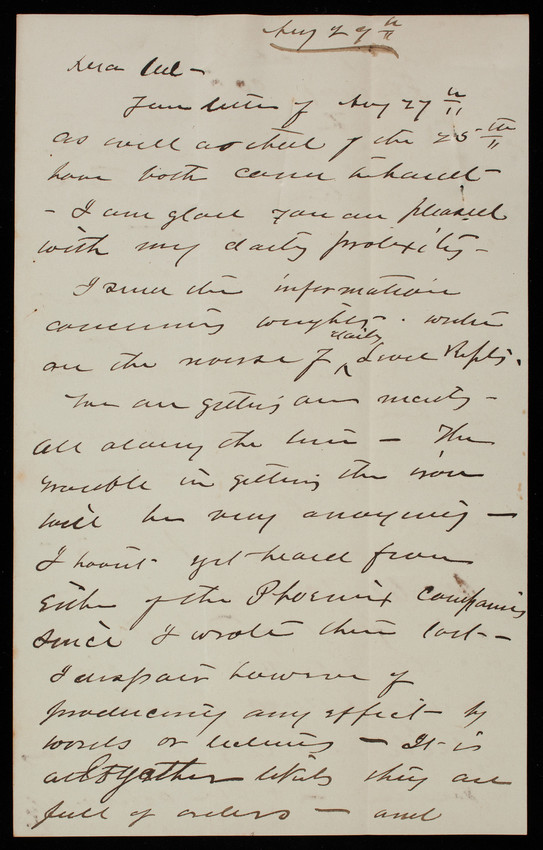 Aug 29th
Dear Col -
Your letter of Aug 27th
as well as that of the 25th
have both come to hand -
- I am glad you are pleased
with my daily prolixity -
I send the information
concerning weights . written
on the reverse of daily Iron Repts.
We are getting on nicely -
all along the line - The
trouble in getting the iron
will be very annoying -
I havn't yet heard from
Either of the Phoenix Companies
since I wrote them last -
I despair however of
producing any effect by
words or - It is
altogether likely they are
full of orders - and